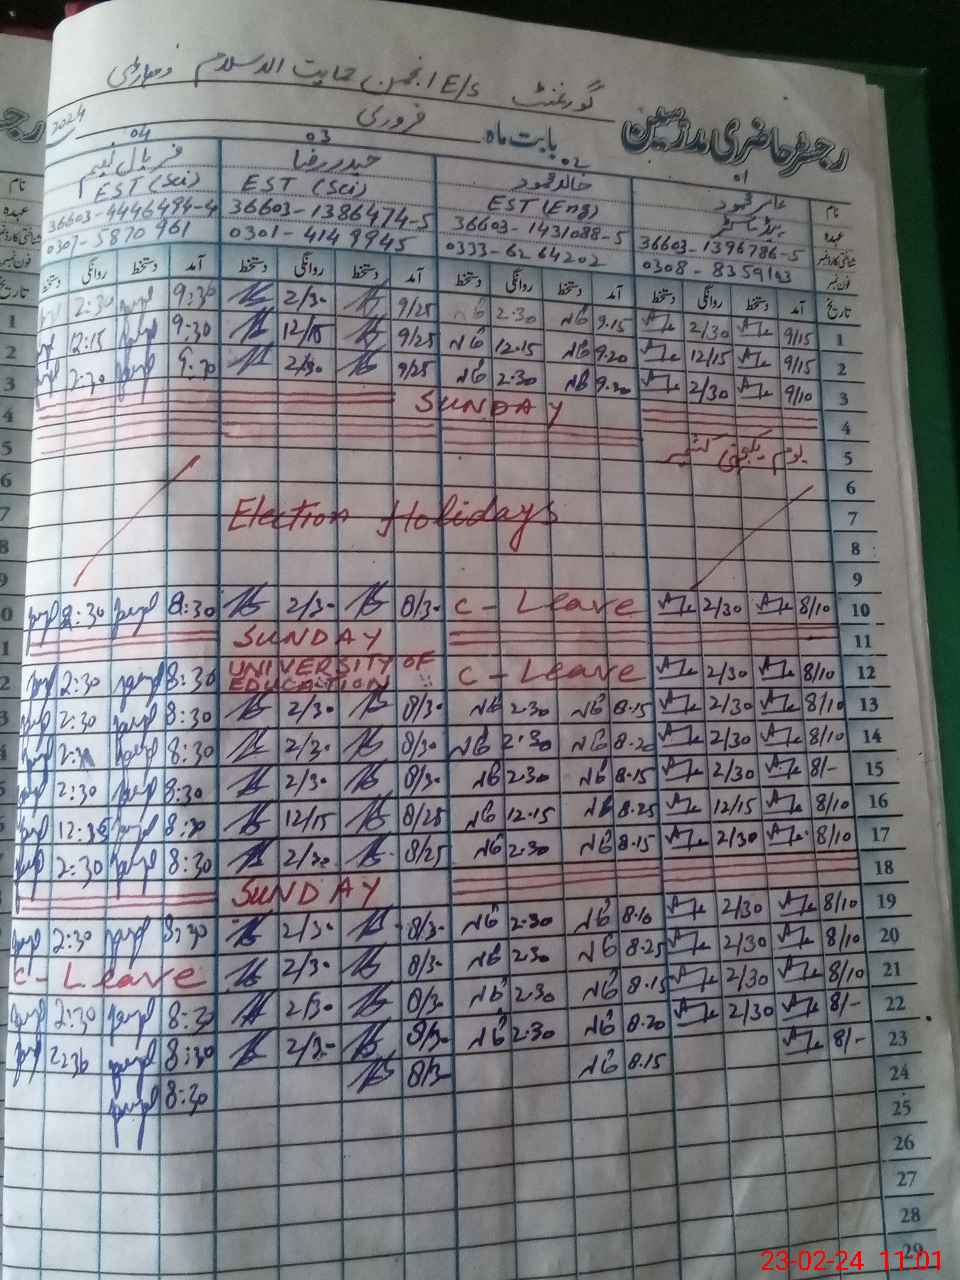 گورنمنٹ E/S انجمن حمایت الاسلام وہاڑی
رجسٹر حاضری مدرسین بابت ماہ فروری 2024
01 02 03 04
نام عامر محمود خالد محمود حیدر رضا فریال نعیم
عہدہ ہیڈ ماسٹر EST (Eng) EST (Sci) EST (Sci)
36603-1396786-5 36603-1431088-5 36603-1386474-5 36603-4446494-4
0308-8359103 0333-6264202 0301-4149945 0307-5870961
تاریخ آمد دستخط روانگی دستخط آمد دستخط روانگی دستخط آمد دستخط روانگی دستخط آمد دستخط روانگی دستخط
1 9/15 2/30 9.15 2.30 9/25 2/30 9:30 2:30
2 9/15 12/15 9.20 12.15 9/25 12/15 9:30 12:15
3 9/10 2/30 9.20 2.30 9/25 2/30 9:30 2:30
4 SUNDAY
5 یوم یکجہتی کشمیر
6
7 Election Holidays
8
9
10 8/10 2/30 C-Leave 8/30 2/30 8:30 2:30
11 SUNDAY
12 8/10 2/30 C-Leave UNIVERSITY OF EDUCATION 8:30 2:30
13 8/10 2/30 8.15 2.30 8/30 2/30 8:30 2:30
14 8/10 2/30 8.20 2.30 8/30 2/30 8:30 2:30
15 8/- 2/30 8.15 2.30 8/30 2/30 8:30 2:30
16 8/10 12/15 8.25 12.15 8/25 12/15 8:30
17 8/10 2/30 8.15 2.30 8/25 2/30 8:30 2:30
18 SUNDAY
19 8/10 2/30 8.10 2.30 8/30 2/30 8:30 2:30
20 8/10 2/30 8.25 2.30 8/30 2/30 C-Leave
21 8/10 2/30 8.15 2.30 8/30 2/30 8:30 2:30
22 8/- 2/30 8.20 2.30 8/30 2/30 8:30 2:30
23 8/- 8.15 8/30 8:30
24
25
26
27
28
29
23-02-24 11:01